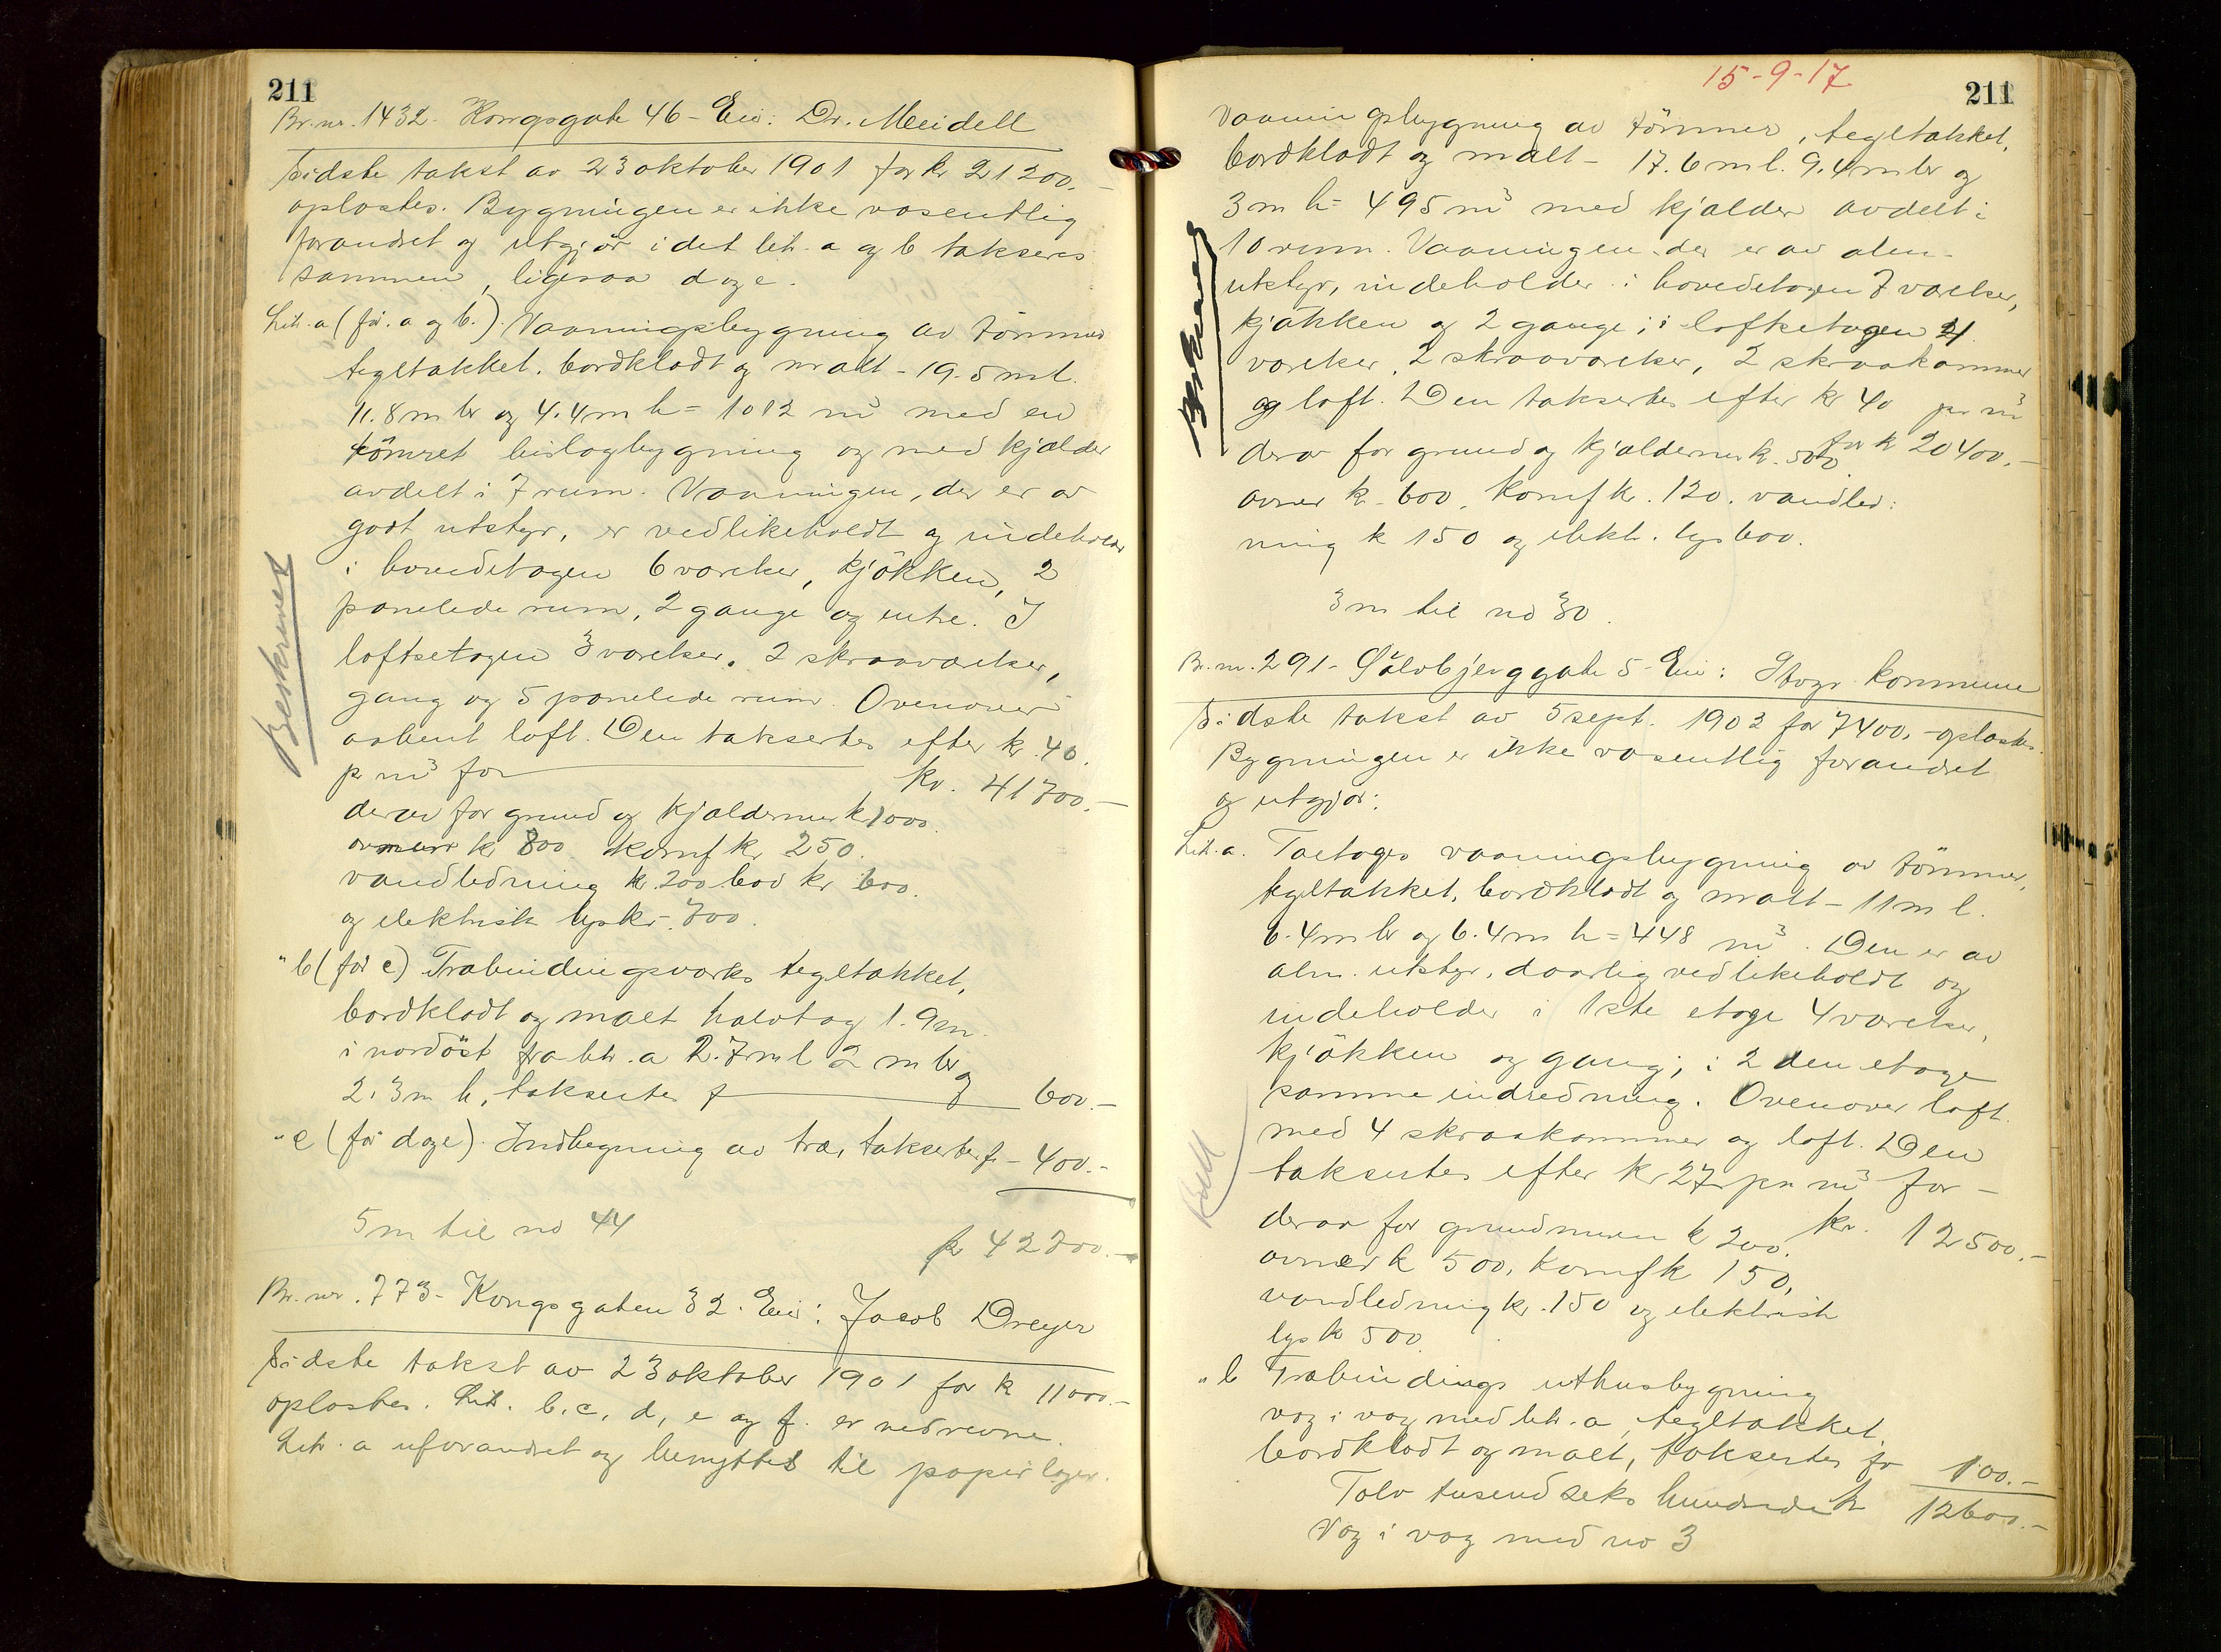 211
Br.nr. 1432. Kongsgate 46 - Eier: Dr. Meidell
Sidste takst av 23 oktober 1901 for kr 21200.-
oplæstes. Bygningen er ikke væsentlig
forandret og utgjør idet litr. a og b takseres
sammen, ligesaa d og e.
Litr. a (før a og b.) Vaaningsbygning av tømmer
tegltækket, bordklædt og malt - 19.5 m l.
11.8 m br og 4.4 m h = 1012 m³ med en
tømret bislagbygning og med kjælder
avdelt i 7 rum. Vaaningen, der er av
godt utstyr, er vedlikeholdt og indeholder
i hovedetagen 6 værelser, kjøkken, 2
panelede rum, 2 gange og entre. I
loftsetagen 3 værelser, 2 skraaværelser,
gang og 5 panelede rum. Ovenover
aabent loft. Den taksertes efter kr. 40.
pr m³ for Kr. 41700.-
derav for grund og kjældermur k 1000.
ovnmur kr 800. komf kr 250.
vandledning kr. 200 bad kr 600.
og elektrisk lys kr. 700.
" b (før c) Træbindingsværks tegltækket,
bordklædt og malt halvtag 1.9 m.
i nordöst fra litr. a 2.7 m l 2 m br og
2.3 m h, taksertes f 600.-
" c (før d og e). Indbygning av træ, taksertes fr - 400.-
5 m til no 44
kr 42700.-
Br. nr. 773 - Kongsgaten 32. Eier: Jacob Dreyer
Sidste takst av 23 oktober 1901 for k 11000.-
oplæstes. Litr. b, c, d, e og f. er nedrevne.
Litr. a uforandret og benyttes til papirlager.
Beskrevet
15-9-17
211
Vaaningsbygning av tömmer, tegltækket,
bordklædt og malt - 17.6 m l. 9.4 m br og
3 m h = 495 m³ med kjælder avdelt i
10 rum. Vaaningen der er av alm.
utstyr, indeholder i hovedetagen 7 værelser,
kjøkken og 2 gange; i loftsetagen 4
værelser, 2 skraaværelser, 2 skraakammer
og loft. Den taksertes efter kr 40 pr m³
for k 20400.-
derav for grund og kjældermur k. 500.
ovner k - 600. Komf kr. 120. vandled-
ning k 150 og elekt. lys 600.
3 m til no 30.
Beskrevet
Br. nr. 291 - Sølvbjerggate 5 - Eier: Stvgr kommune
Sidste takst av 5 sept. 1902 for 7400.- oplæstes.
Bygningen er ikke væsentlig forandret
og utgjør:
Litr. a. Toetages vaaningsbygning av tömmer,
tegltækket, bordklædt og malt - 11 m l.
6.4 m br og 6.4 m h = 448 m³. Den er av
alm. utstyr, daarlig vedlikeholdt og
indeholder i 1ste etage 4 værelser,
kjøkken og gang; i 2den etage
samme indredning. Ovenover loft
med 4 skraakammer og loft. Den
taksertes efter kr 27 pr m³ for -
kr. 12500.-
derav for grundmuren k 200.
ovner k 500, komf k 150,
vandledning kr. 150 og elektrisk
lys k 500.
" b Træbindings uthusbygning
væg i væg med litr. a, tegltækket,
bordklædt og malt, taksertes for 100.-
Tolv tusend seks hundrede k 12600.-
Væg i væg med no 3